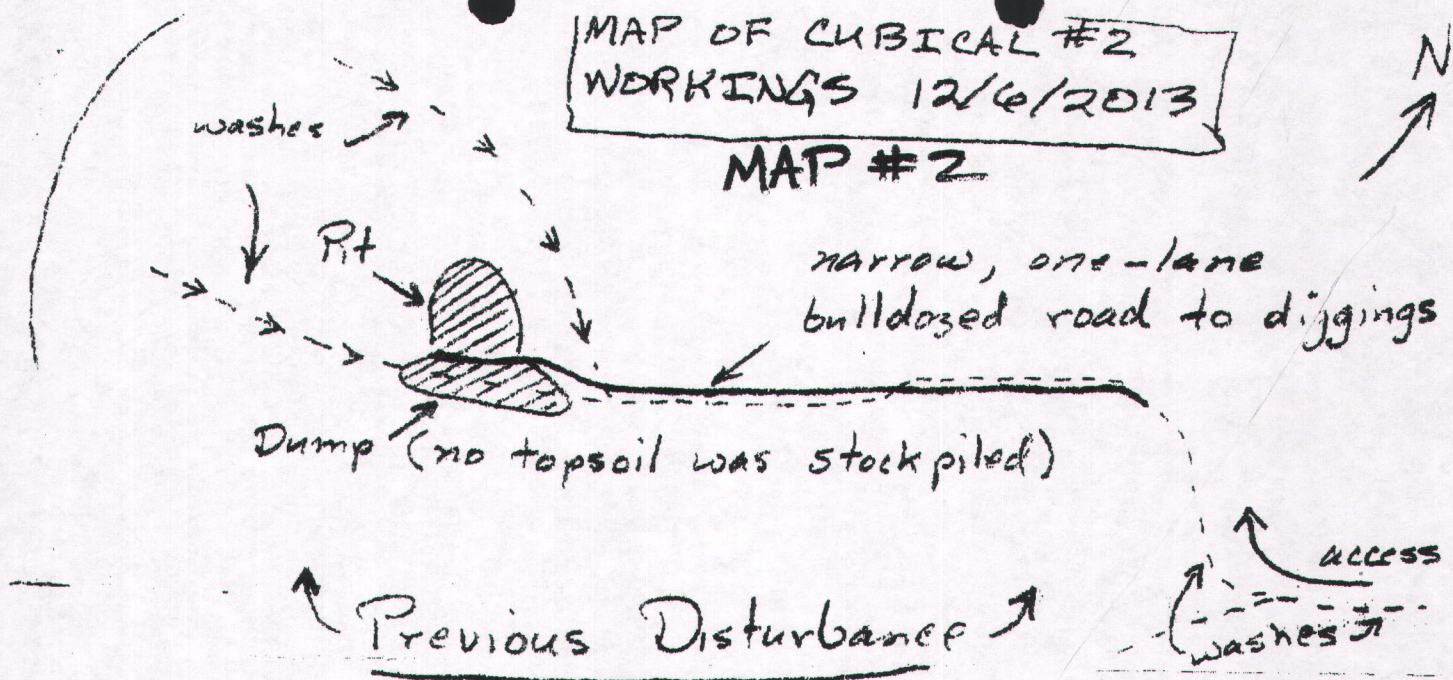 MAP OF CUBICAL #2
WORKINGS 12/6/2013
MAP #2
N
washes
Pit
narrow, one-lane
bulldozed road to diggings
Dump (no topsoil was stockpiled)
access
Previous Disturbance
washes